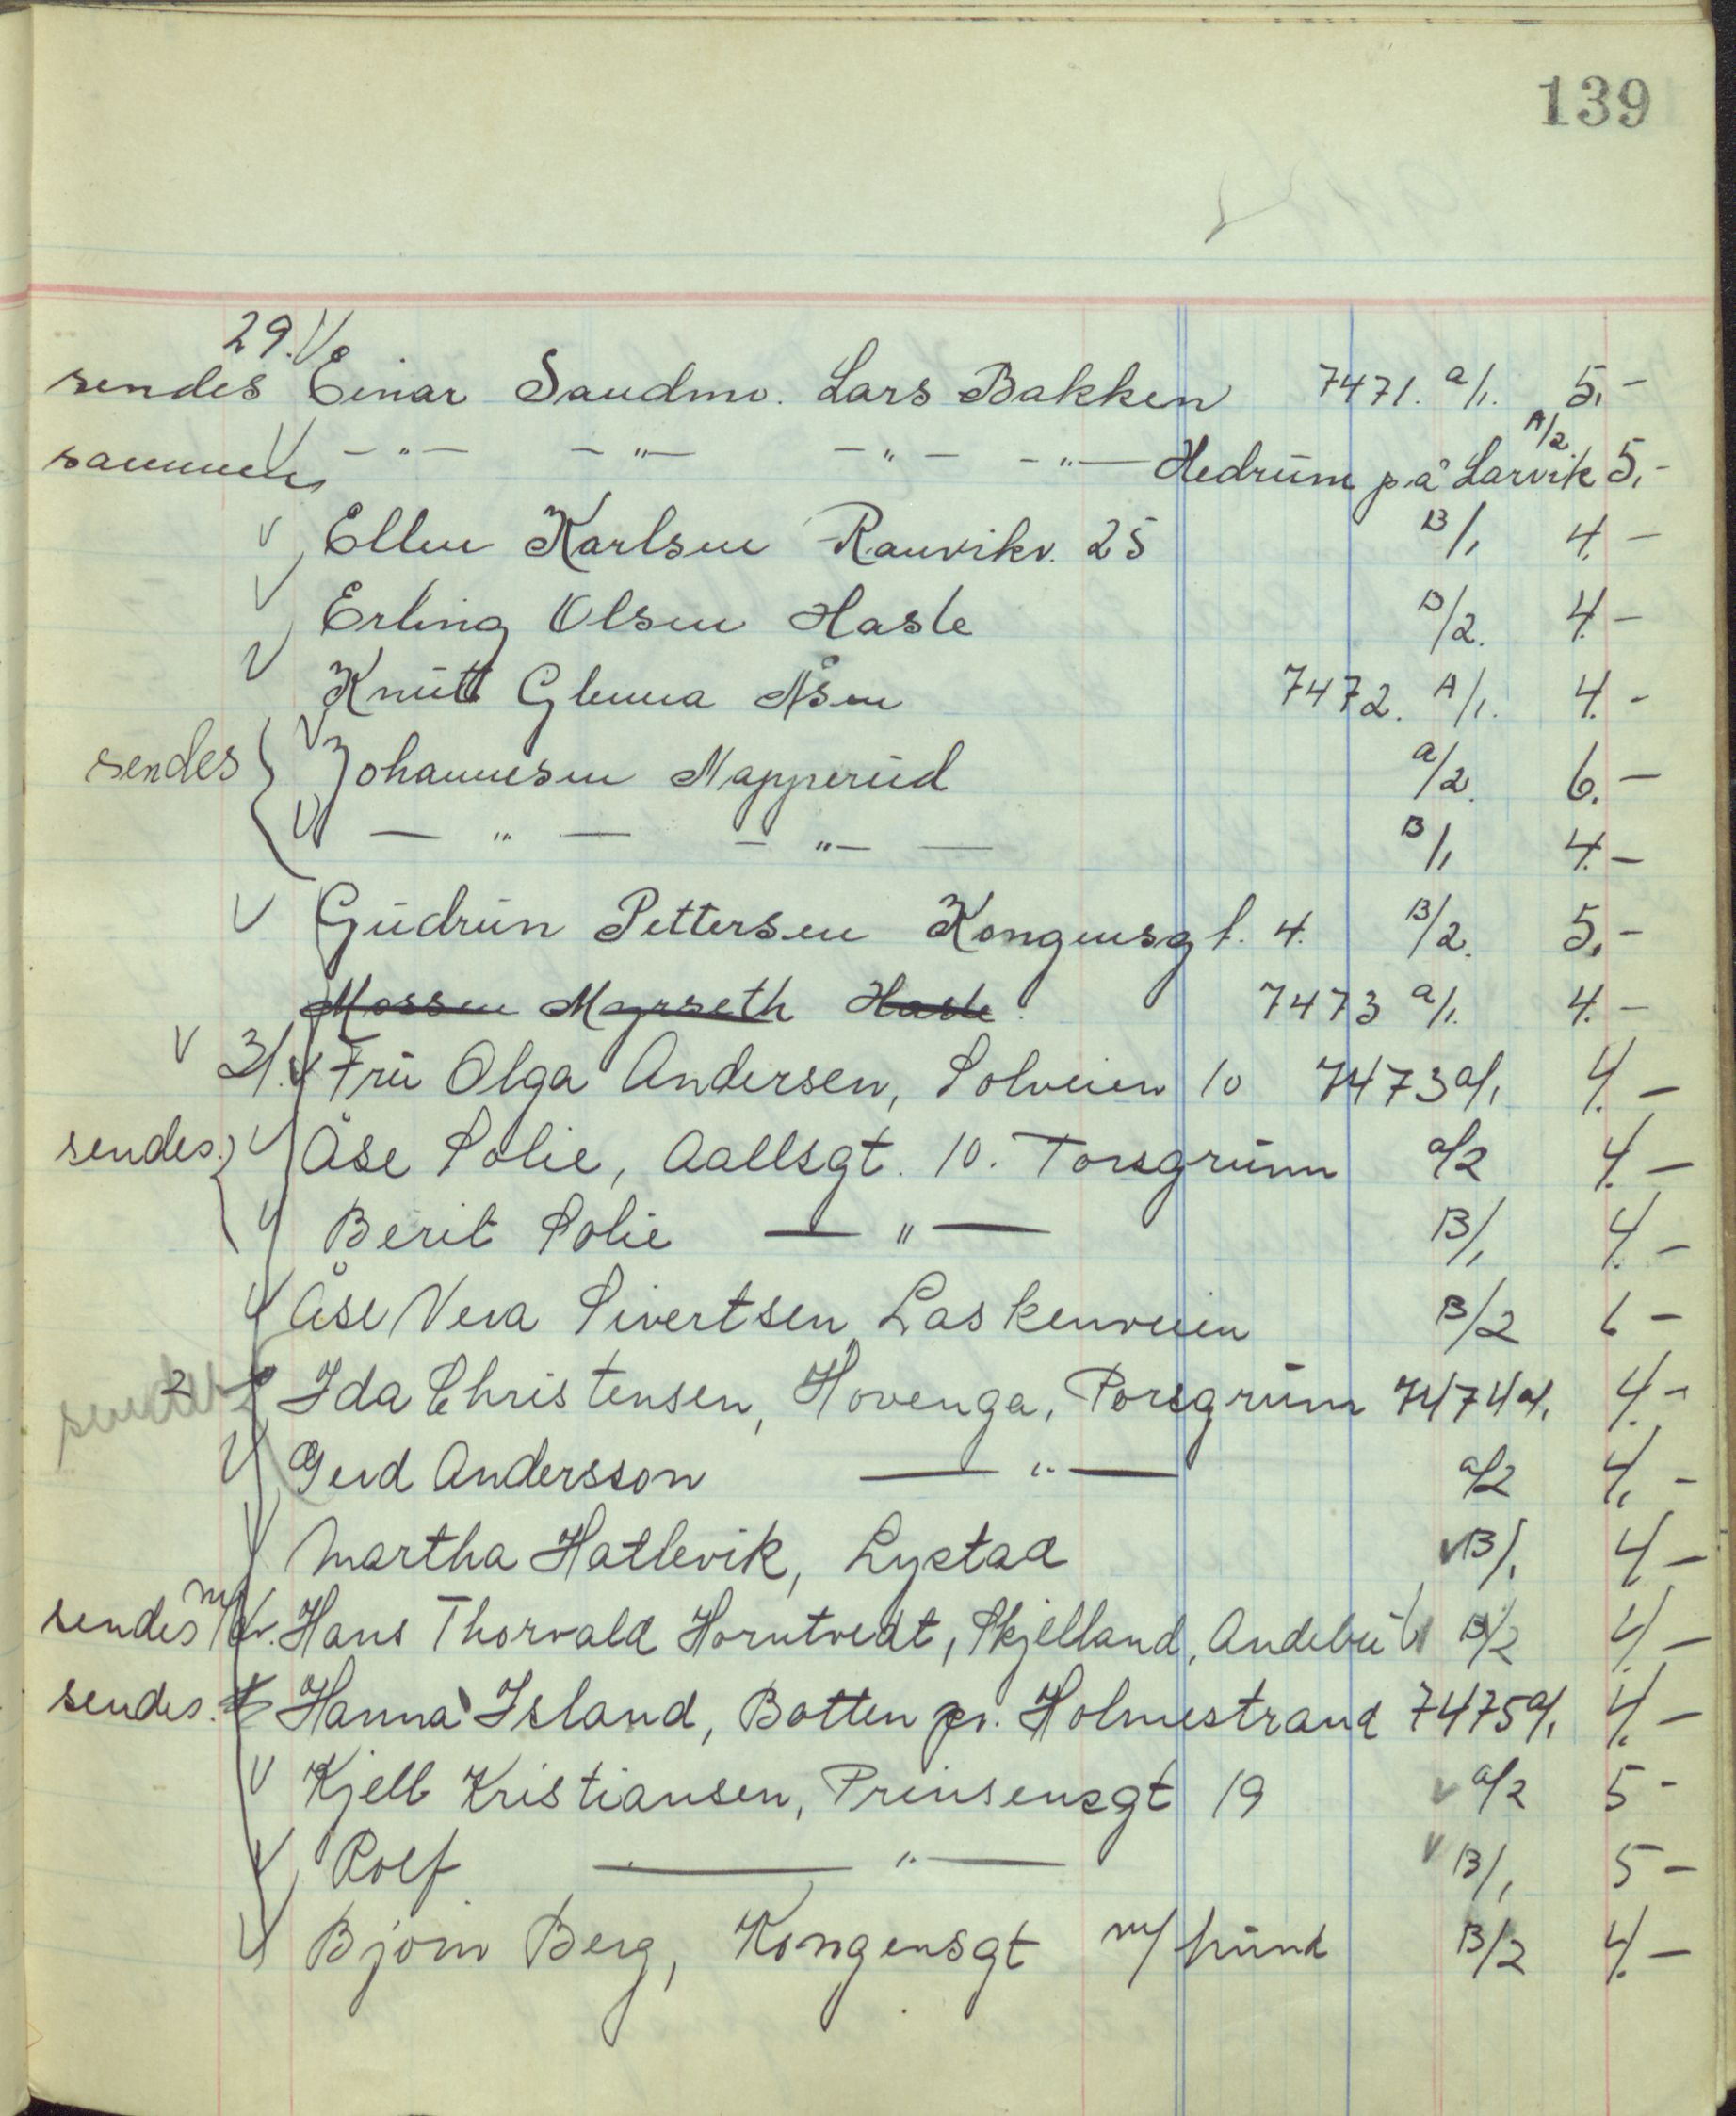 139
29. V
sendes Einar Saudmo. Lars Bakken 7471. a/1. 5,-
sammen V - " - - " - - " - - " - Hedrum på Larvik A/2 5,-
V Ellen Karlsen Ranvikv. 25 B/1 4.-
V Erling Olsen Hasle B/2. 4.-
V Knutt Glenna Åsen 7472. A/1. 4.-
sendes { V Johannesen Napperud a/2. 6.-
V - " - - " - B/1 4.-
V Gudrun Pettersen Kongensgt. 4. B/2. 5,-
Mossen Myrseth Hasle. 7473 a/1. 4.-
V 31. V Fru Olga Andersen, Solveien 10 7473 a/1 4.-
sendes. { V Åse Solie, Aallsgt. 10. Porsgrunn a/2 4.-
V Berit Solie - " - B/1 4.-
V Åse Vera Sivertsen Laskenveien B/2 6 -
sendes 2 Ida Christensen, Hovenga, Porsgrunn 7474 a/1 4.-
V Gerd Andersson - " - a/2 4,-
V Martha Hatlevik, Lystad V B/1. 4 -
sendes m/ V. Hans Thorvald Horntvedt, Skjelland, Andebu B/2 4.-
sendes. Hanna Island, Botten pr. Holmestrand 7475 a/1 4.-
V Kjell Kristiansen, Prinsensgt 19 V a/2 5 -
V Rolf - " - V B/1 5 -
V Bjørn Berg, Kongensgt m/ hund B/2 4.-